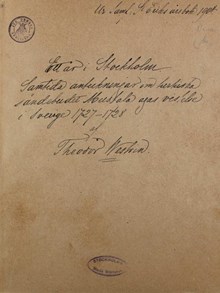 Ett år i Stockholm
Samtida anteckningar om turkiska
sändebudet Mustafa agas vistelse
i Sverige 1727-1728
af
Theodor Westrin